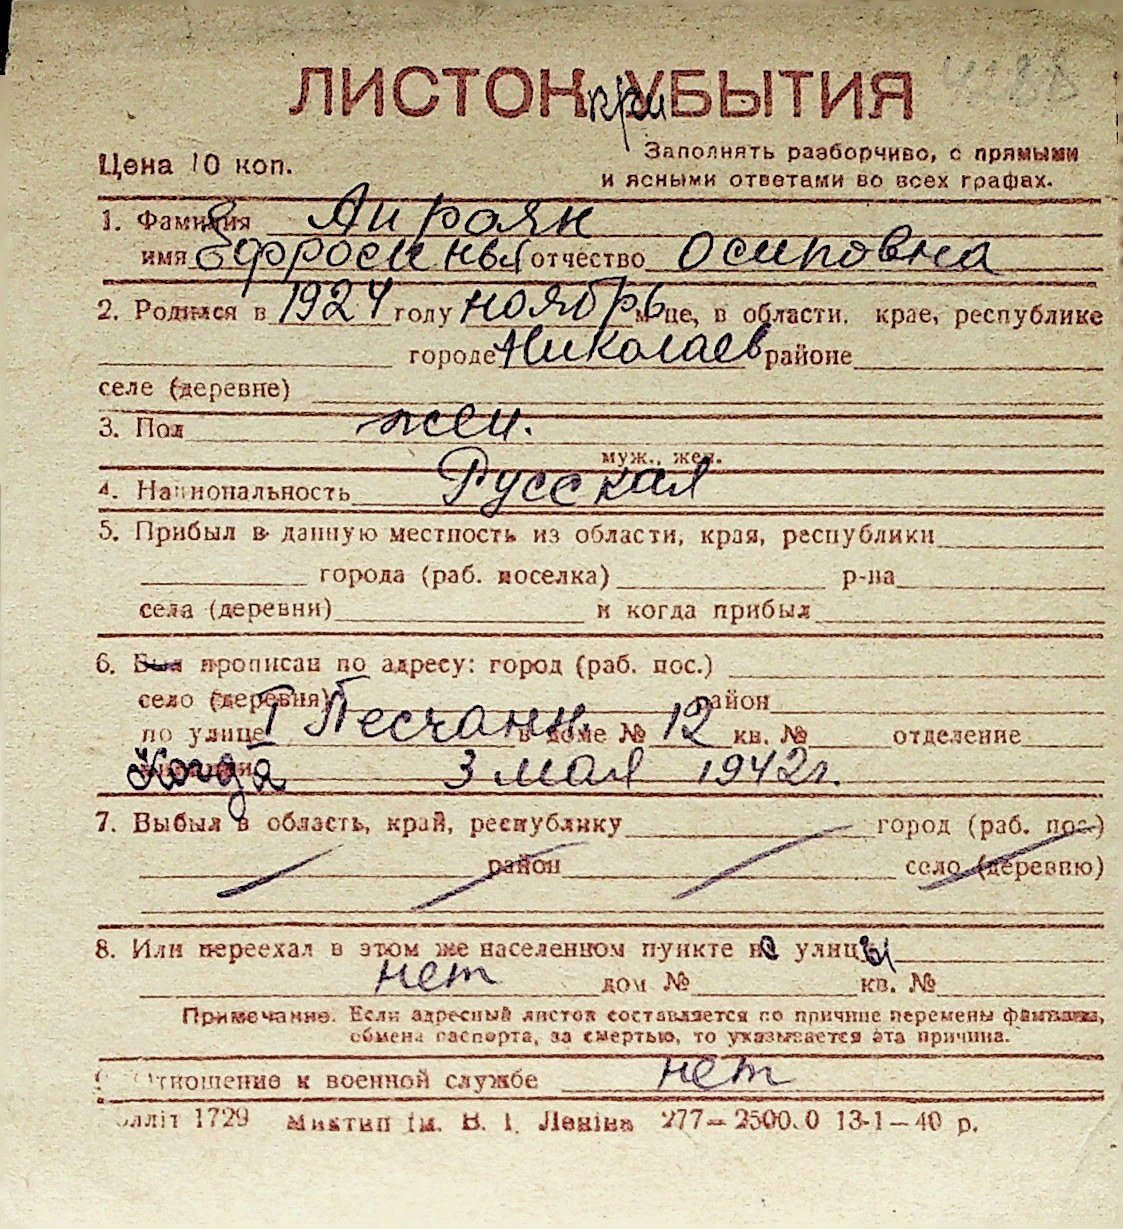 ЛИСТОК при УБЫТИЯ
Цена 10 коп.
Заполнять разборчиво, с прямыми
и ясными ответами во всех графах.
1. Фамилия Аироян
имя Ефросинья отчество Осиповна
2. Родился в 1924 году ноябрь м-це, в области, крае, республике
городе Николаев районе
селе (деревне)
3. Пол жен.
муж., жен.
4. Национальность Русская
5. Прибыл в данную местность из области, края, республики
города (раб. поселка) р-на
села (деревни) и когда прибыл
6. Был прописан по адресу: город (раб. пос.)
село (деревня) район
по улице I Песчанн. в доме № 12 кв. № отделение
Когда 3 мая 1942 г.
7. Выбыл в область, край, республику город (раб. пос.)
район село (деревню)
8. Или переехал в этом же населенном пункте на улицы
нет дом № кв. №
Примечание. Если адресный листок составляется по причине перемены фамилии,
обмена паспорта, за смертью, то указывается эта причина.
Отношение к военной службе нет
1729 Миктип ім. В. І. Леніна 277—2500.0 13-1—40 р.